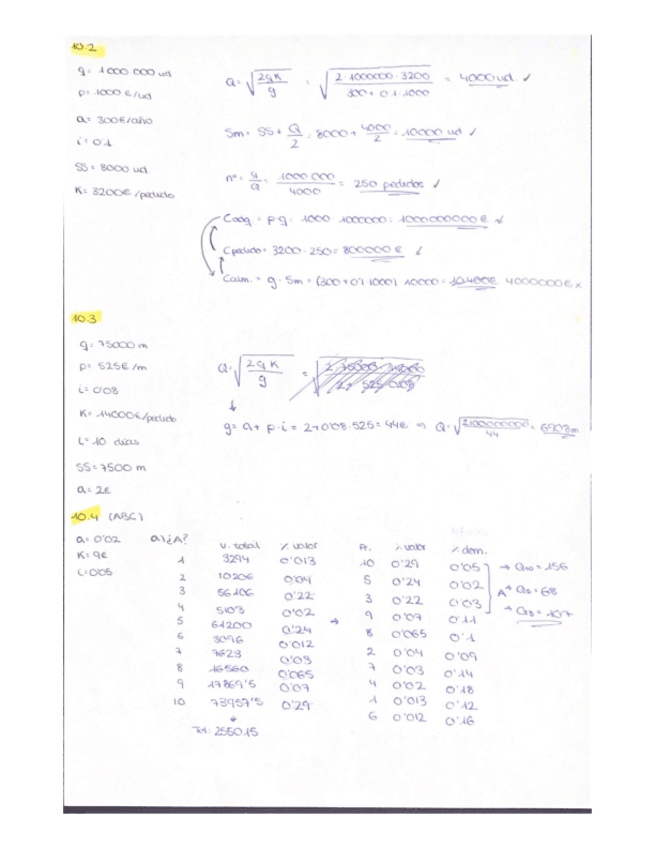 10.2
q = 1000 000 ud
p = 1000 €/ud
a = 300€/año
i = 0'1
SS = 8000 ud
K = 3200€ /pedido
Q = √(2qK / g) = √(2·1000000·3200 / 300+0'1·1000) = 4000 ud. ✓
Sm = SS + Q/2 = 8000 + 4000/2 = 10000 ud ✓
nº = q/Q = 1000 000/4000 = 250 pedidos ✓
Cadq. = p·q = 1000·1000000 = 1000000000 € ✓
Cpedido = 3200·250 = 800000 € ✓
Calm. = g·Sm = (300+0'1·1000)·10000 = 10.400€ 4000000€ x
10.3
q = 75000 m
p = 525€ /m
i = 0'08
K = 14000€/pedido
L = 10 días
SS = 7500 m
a = 2€
Q = √(2qK / g) =
↓
g = a + p·i = 2+0'08·525 = 44€ ⇒ Q = √(2100000000 / 44) = 6908m
10.4 (ABC)
a = 0'02
K = 9€
i = 0'05
a) ¿A?
V. total % valor
1 3294 0'013
2 10206 0'04
3 56106 0'22
4 5103 0'02
5 61200 0'24
6 3096 0'012
7 7623 0'03
8 16560 0'065
9 17869'5 0'07
10 73957'5 0'29
↓
Tot: 255015
→
A. % valor % dem.
10 0'29 0'05 → Q10 = 156
5 0'24 0'02 A → Q5 = 68
3 0'22 0'03 → Q3 = 107
9 0'07 0'11
8 0'065 0'1
2 0'04 0'09
7 0'03 0'14
4 0'02 0'18
1 0'013 0'12
6 0'012 0'16